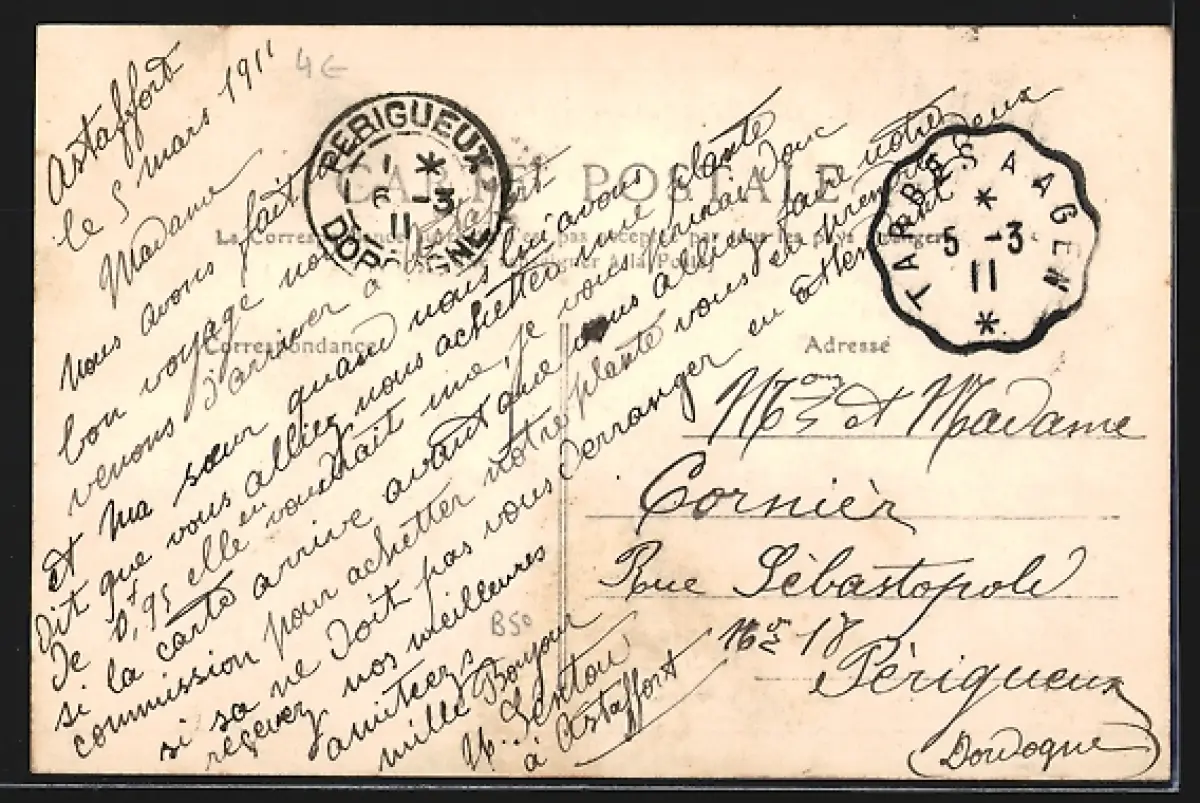 Astaffort
le 5 mars 1911
4€
Madame
Nous avons fait
bon voyage nous
venons d'arriver à Astafort
et ma sœur quand nous lui avons
dit que vous alliez nous achetter une plante
de 0f,95 elle en voudrait une, je vous prirai donc
si la carte arrive avant que vous alliez faire notre
commission pour achetter notre plante vous en prendrez deux
si sa ne doit pas vous derranger en attendant
reçevez nos meilleures
amitiées
mille Bonjour
Sentou
à Astaffort
B50
PERIGUEUX
1 *
6 -3
11
DORDOGNE
TARBES A AGEN
*
5 -3
11
*
CARTE POSTALE
La Correspondance au recto n'est pas acceptée par tous les pays étrangers
(Se renseigner à la Poste)
Correspondance
Adresse
Mr et Madame
Cornièr
Rue Sébastopole
No 18
Périgueux
(Dordogne)